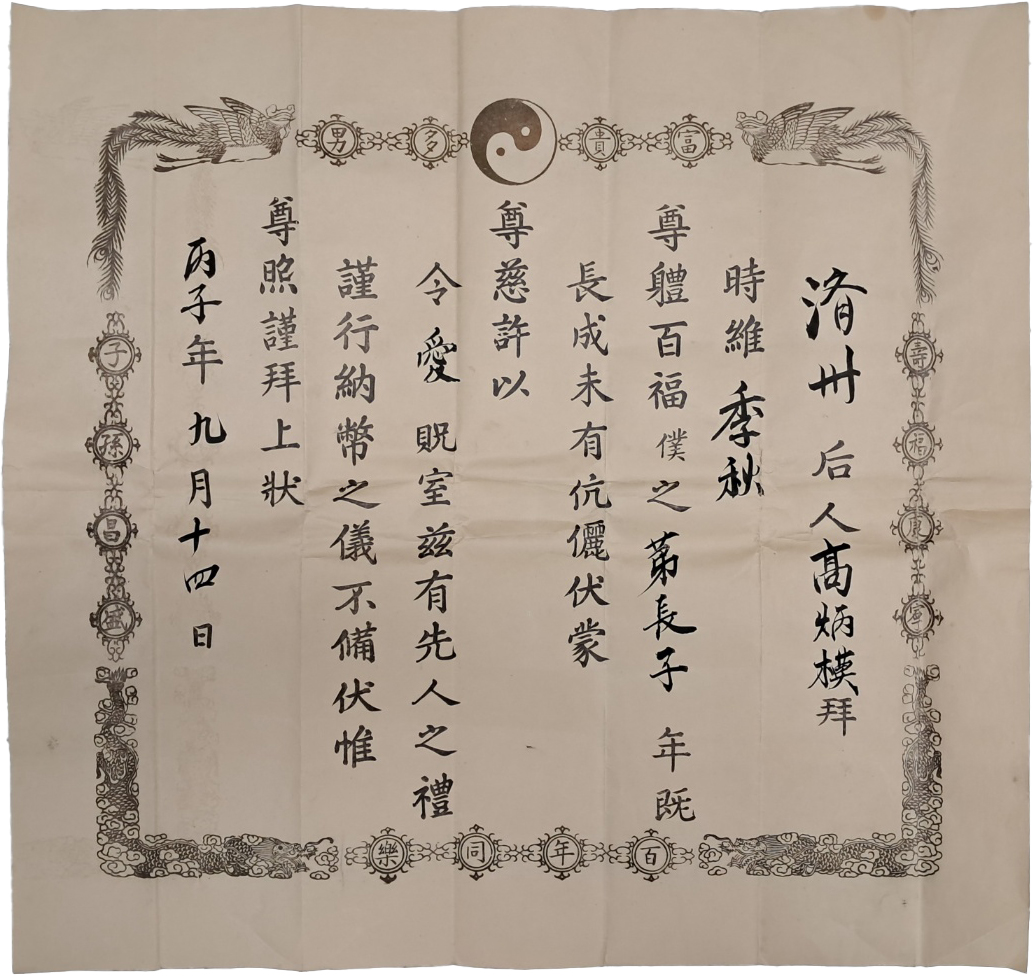 富貴多男
壽福康寧
濟州 后人 高炳模拜
時維 季秋
尊體百福 僕之 第長子 年既
長成未有伉儷伏蒙
尊慈許以
令愛 貺室玆有先人之禮
謹行納幣之儀不備伏惟
尊照謹拜上狀
丙子年 九月十四日
子孫昌盛
百年同樂